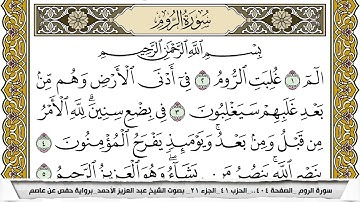 سورة الروم
بسم الله الرحمن الرحيم
الٓمٓ ١ غُلِبَتِ ٱلرُّومُ ٢ فِىٓ أَدْنَى ٱلْأَرْضِ وَهُم مِّنۢ
بَعْدِ غَلَبِهِمْ سَيَغْلِبُونَ ٣ فِى بِضْعِ سِنِينَ ۗ لِلَّهِ ٱلْأَمْرُ
مِن قَبْلُ وَمِنۢ بَعْدُ ۚ وَيَوْمَئِذٍ يَفْرَحُ ٱلْمُؤْمِنُونَ ٤
بِنَصْرِ ٱللَّهِ ۚ يَنصُرُ مَن يَشَآءُ ۖ وَهُوَ ٱلْعَزِيزُ ٱلرَّحِيمُ ٥
سورة الروم _ الصفحة ٤٠٤ _ الحزب ٤١ _ الجزء ٢١ _ بصوت الشيخ عبد العزيز الأحمد _ برواية حفص عن عاصم